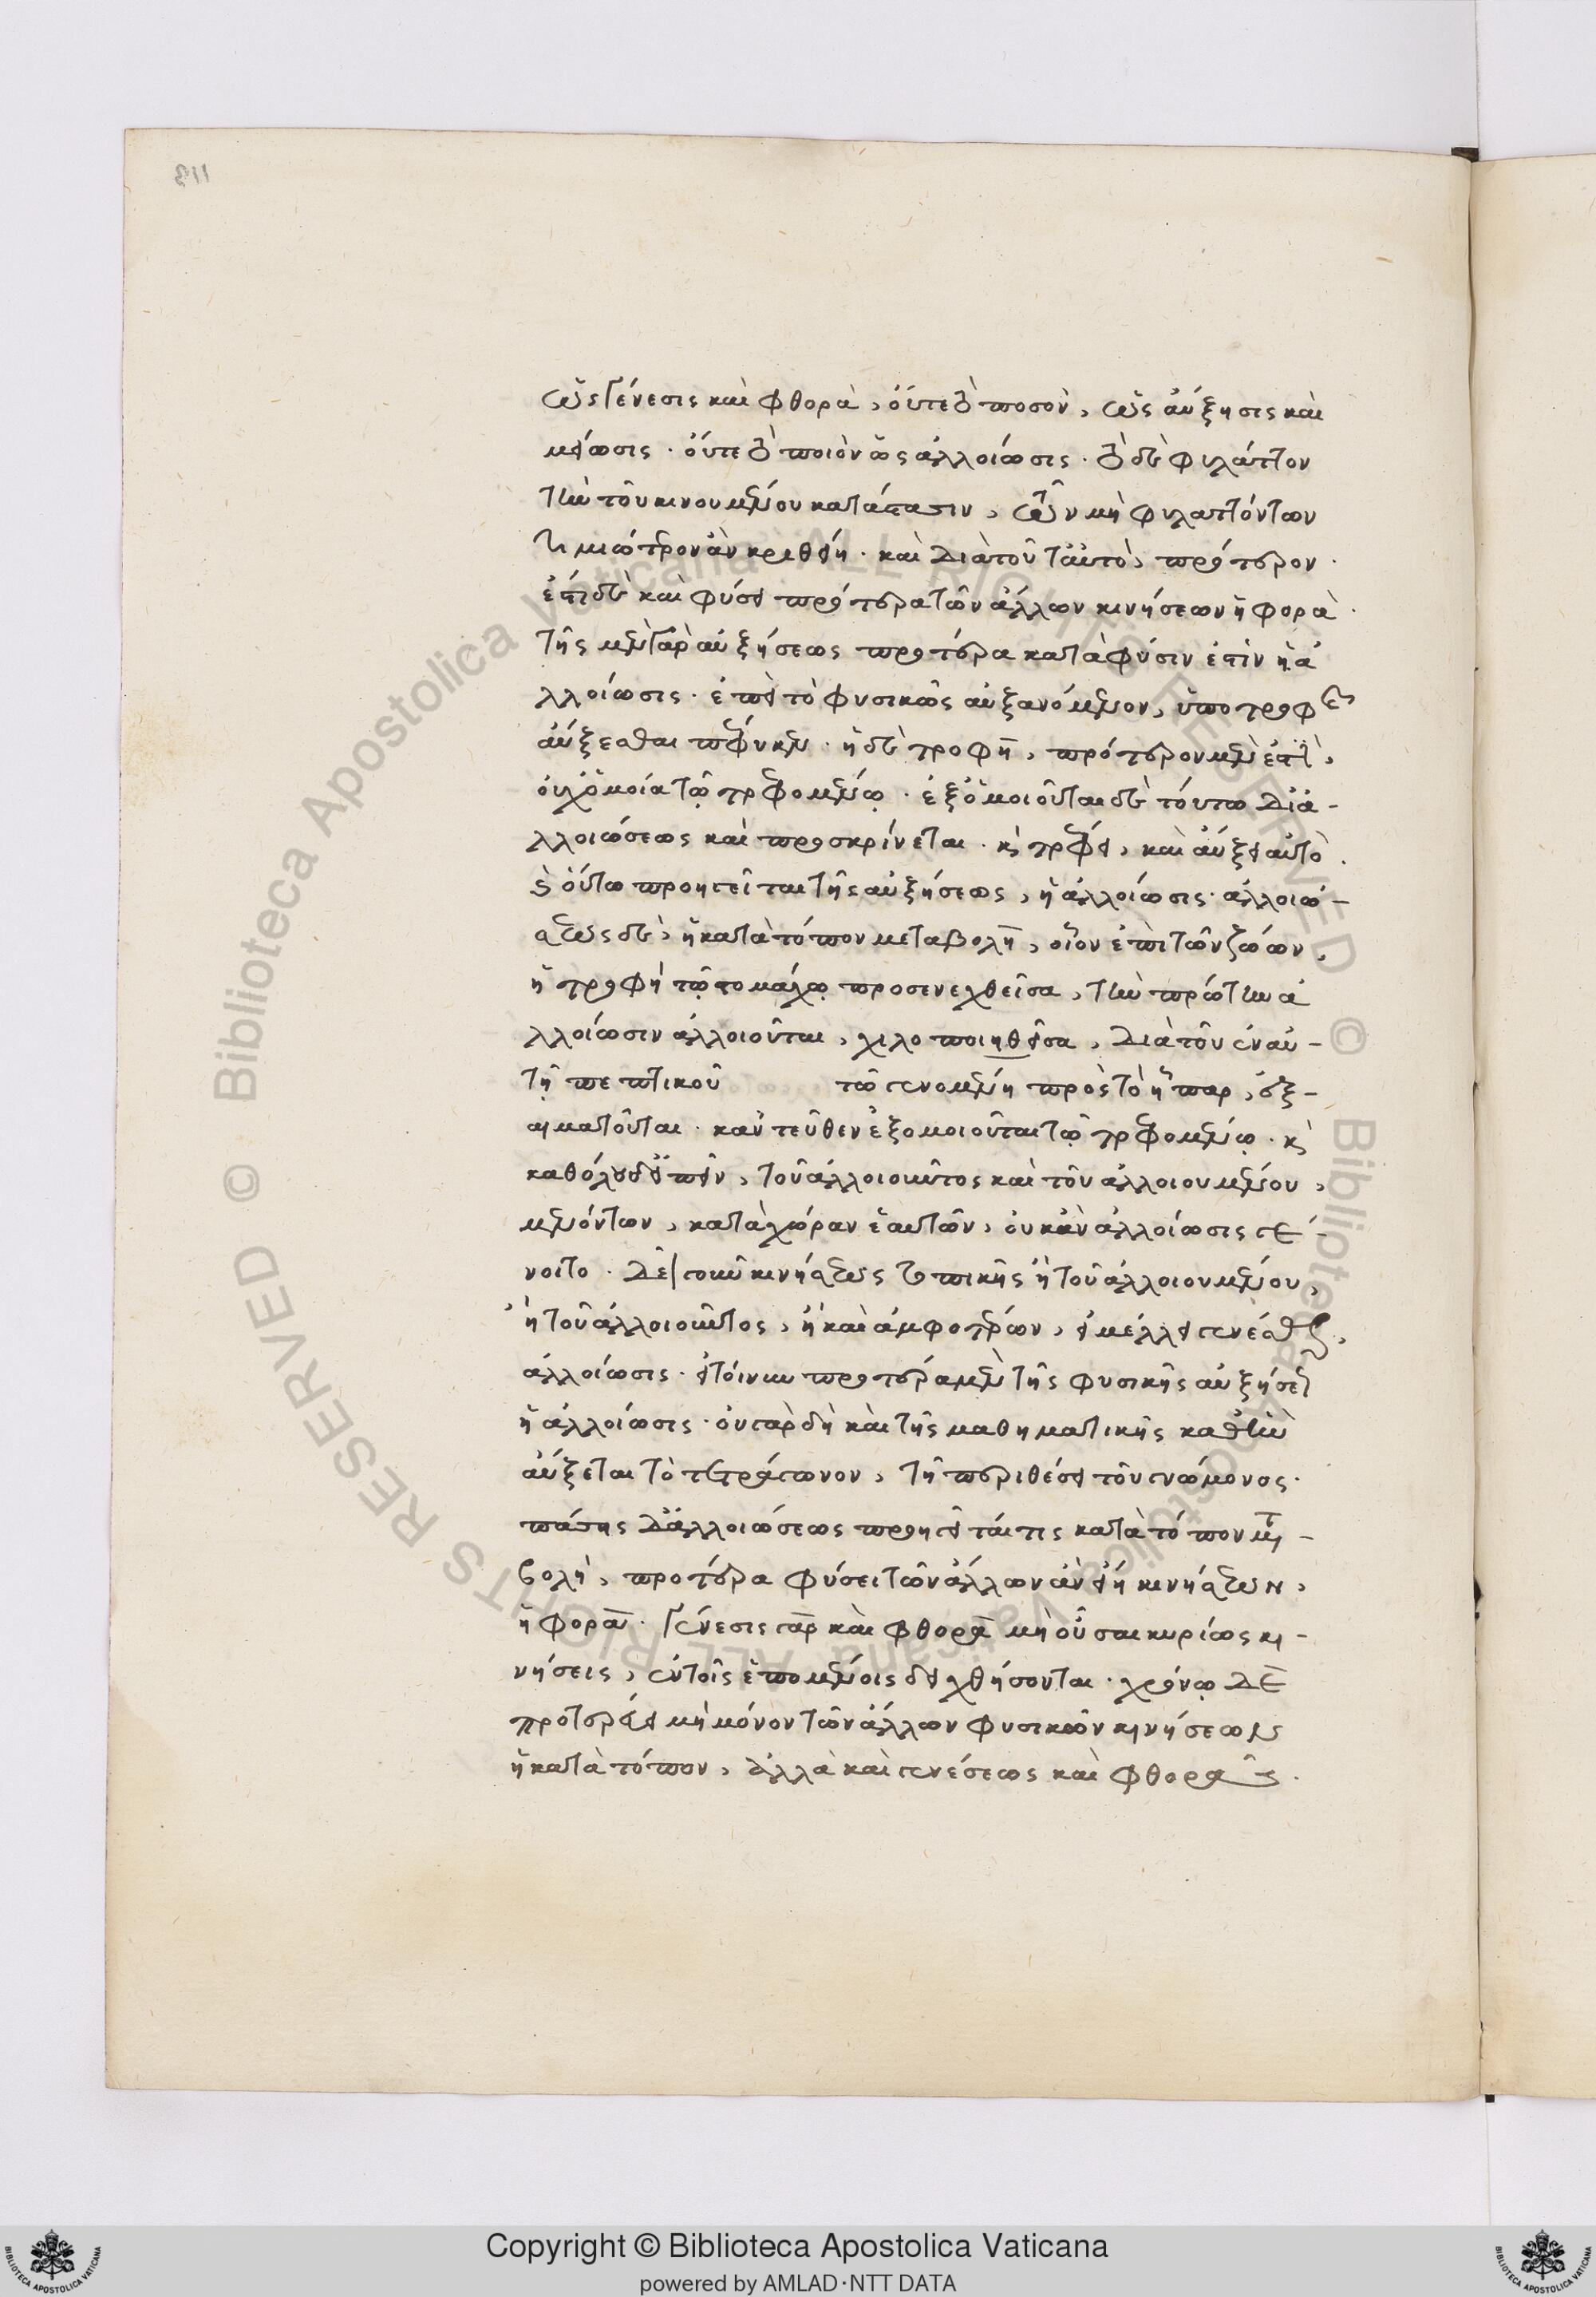 ὡς γένεσις καὶ φθορὰ, οὔτε τὸ ποσὸν, ὡς αὔξησις καὶ
μείωσις. οὔτε τὸ ποιὸν ὡς ἀλλοίωσις. τὸ δὲ φυλάττον
τὴν τοῦ κινουμένου κατάστασιν, τῶν μὴ φυλαττόντων
τιμιώτερον ἂν κριθείη. καὶ διὰ τοῦ ταὐτὸ, πρότερον.
ἔτι δὲ καὶ φύσει πρότερα τῶν ἄλλων κινήσεων ἡ φορὰ.
τῆς μὲν γὰρ αὐξήσεως προτέρα κατὰ φύσιν ἐστὶν ἡ ἀ
λλοίωσις. ἐπεὶ τὸ φυσικῶς αὐξανόμενον, ὑπὸ τροφῆς
αὔξεσθαι πέφυκεν. ἡ δὲ τροφὴ, πρότερον μὲν ἐστὶ,
οὐχ ὁμοία τῷ τρεφομένῳ. ἐξομοιοῦται δὲ τούτω δι' ἀ-
λλοιώσεως καὶ προσκρίνεται. κ τρέφει, καὶ αὔξει αὐτὸ.
κ οὕτω προηγεῖται τῆς αὐξήσεως, ἡ ἀλλοίωσις. ἀλλοιώ-
σεως δὲ, ἡ κατὰ τόπον μεταβολὴ, οἷον ἐπὶ τῶν ζώων,
ἡ τροφὴ τῷ στομάχῳ προσενεχθεῖσα, τὴν πρώτην ἀ
λλοίωσιν ἀλλοιοῦται, χιλοποιηθεῖσα, διὰ τοῦ ἐν αὐ-
τῇ πεπτικοῦ τῶ γενομένη πρὸς τὸ ἧπαρ, ἐξ-
αιματοῦται. κἀντεῦθεν ἐξομοιοῦται τῷ τρεφομένῳ. κ
καθόλου δ' εἰπεῖν, τοῦ ἀλλοιοῦντος καὶ τοῦ ἀλλοιουμένου,
μενόντων, κατὰ χώραν ἑαυτῶν, οὐκ ἂν ἀλλοίωσις γέ-
νοιτο. δεῖ γοῦν κινήσεως τοπικῆς ἢ τοῦ ἀλλοιουμένου,
ἢ τοῦ ἀλλοιοῦντος, ἢ καὶ ἀμφοτέρων, εἰ μέλλει γενέσθαι,
ἀλλοίωσις. εἰ τοίνυν προτέρα μὲν τῆς φυσικῆς αὐξήσεως
ἡ ἀλλοίωσις. οὐ γὰρ δὴ καὶ τῆς μαθηματικῆς καθ' ἣν
αὔξεται τὸ τετράγωνον, τῇ περιθέσει τοῦ γνώμονος.
πάσης δ' ἀλλοιώσεως προηγεῖται τις κατὰ τόπον μετα-
βολὴ, προτέρα φύσει τῶν ἄλλων ἂν εἴη κινήσεων,
ἡ φορὰ. γένεσις γὰρ καὶ φθορὰ μὴ οὖσαι κυρίως κι-
νήσεις, ἐν τοῖς ἑπομένοις δειχθήσονται. χρόνῳ δὲ
προτερεύει μὴ μόνον τῶν ἄλλων φυσικῶν κινήσεων
ἡ κατὰ τόπον, ἀλλὰ καὶ γενέσεως καὶ φθορᾶς.